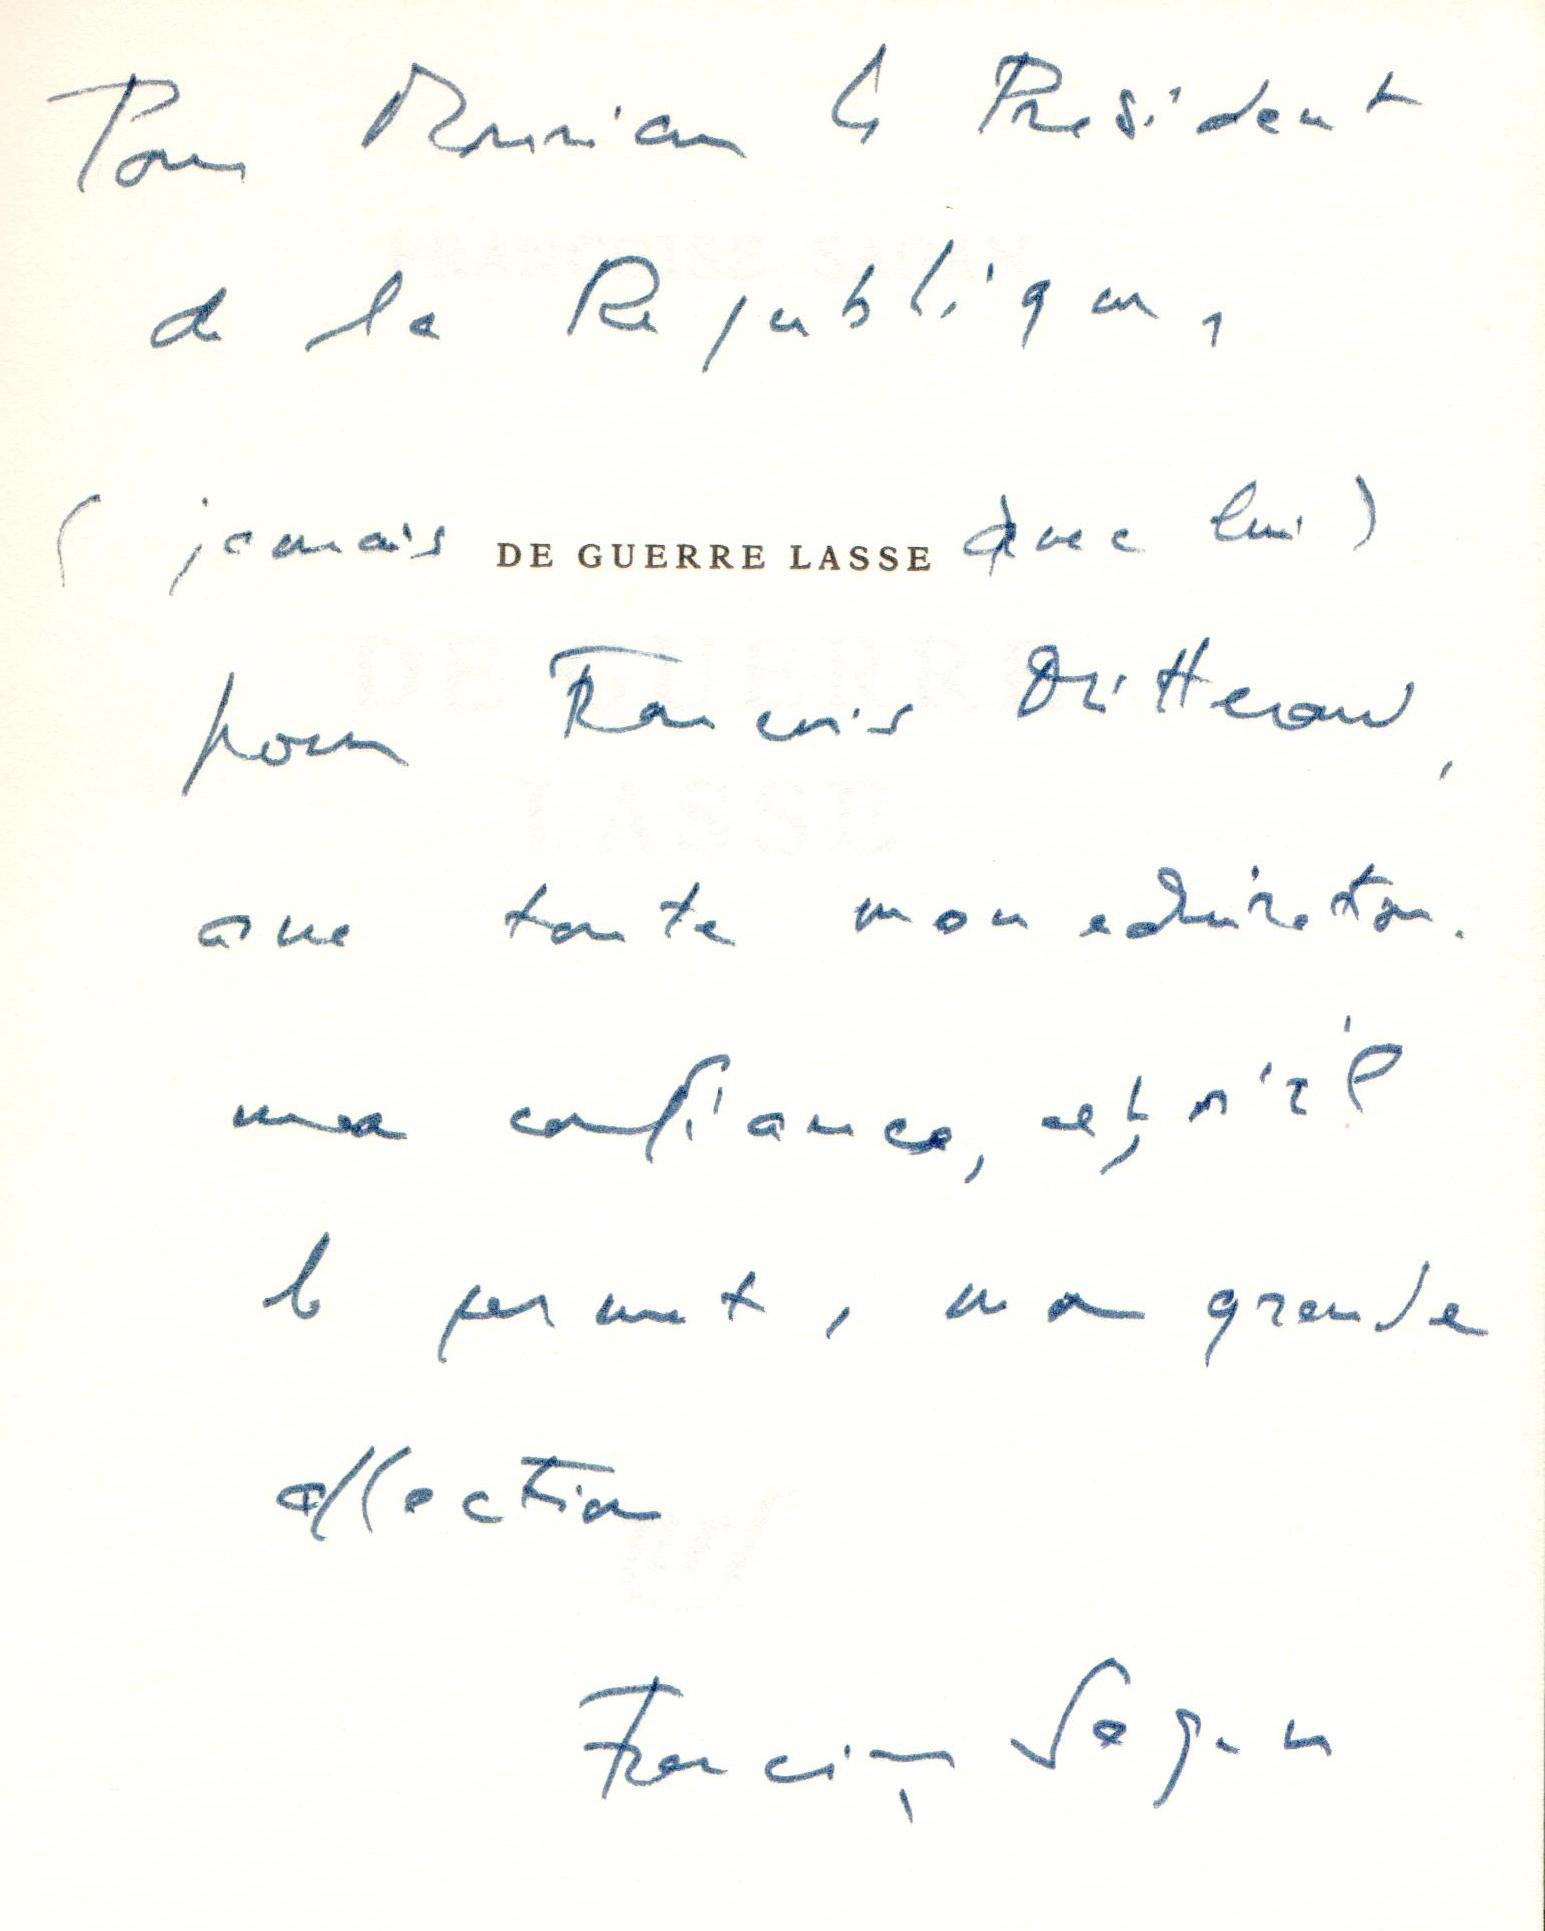 Pour Monsieur le Président
de la République,
(jamais DE GUERRE LASSE avec lui)
pour François Mitterrand,
avec toute mon admiration.
ma confiance, et, s'il
le permet, ma grande
affection
Françoise Sagan